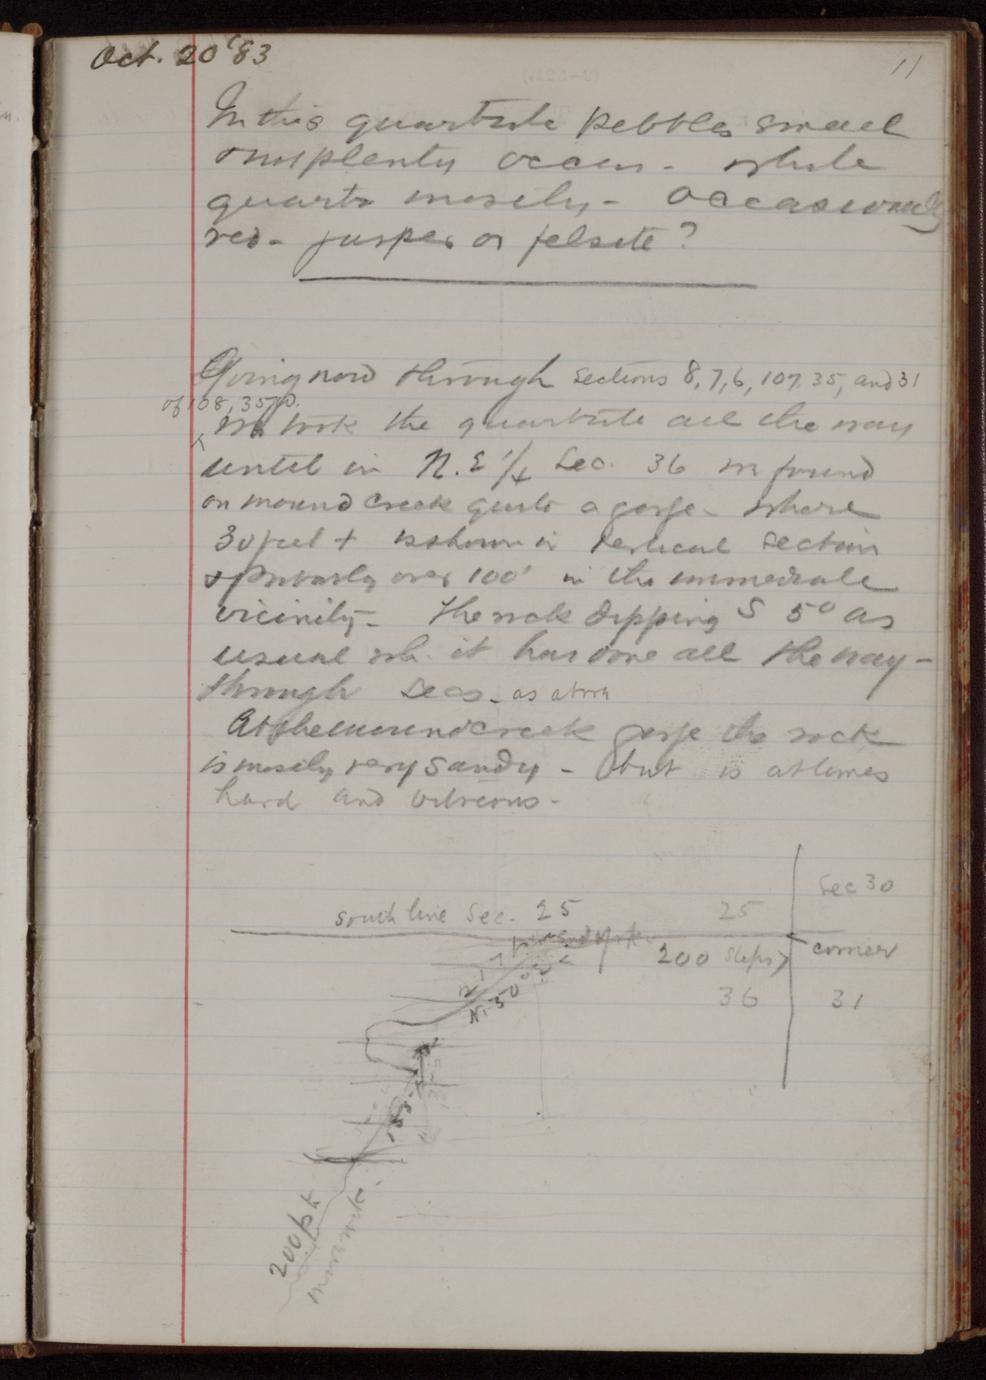 Oct. 20 '83
11
In this quartzite pebbles small
and plenty occur - white
quartz mostly - occasionally
red - jasper or felsite?
Going now through Sections 8, 7, 6, 107. 35, and 31
of 108, 35
we took the quartzite all the way
until in N.E 1/4 Sec. 36 we found
on mound Creek quite a gorge - where
30 feet + is shown in vertical section
& probably over 100' in the immediate
vicinity - The rock dipping S 5° as
usual wh. it has done all the way -
through Secs. as above
At the mound creek gorge the rock
is mostly very sandy - but is at times
hard and vitreous -
Sec 30
South line Sec. 25
25
200 Steps
corner
36
31
N. 30°
200 ft
more rock.